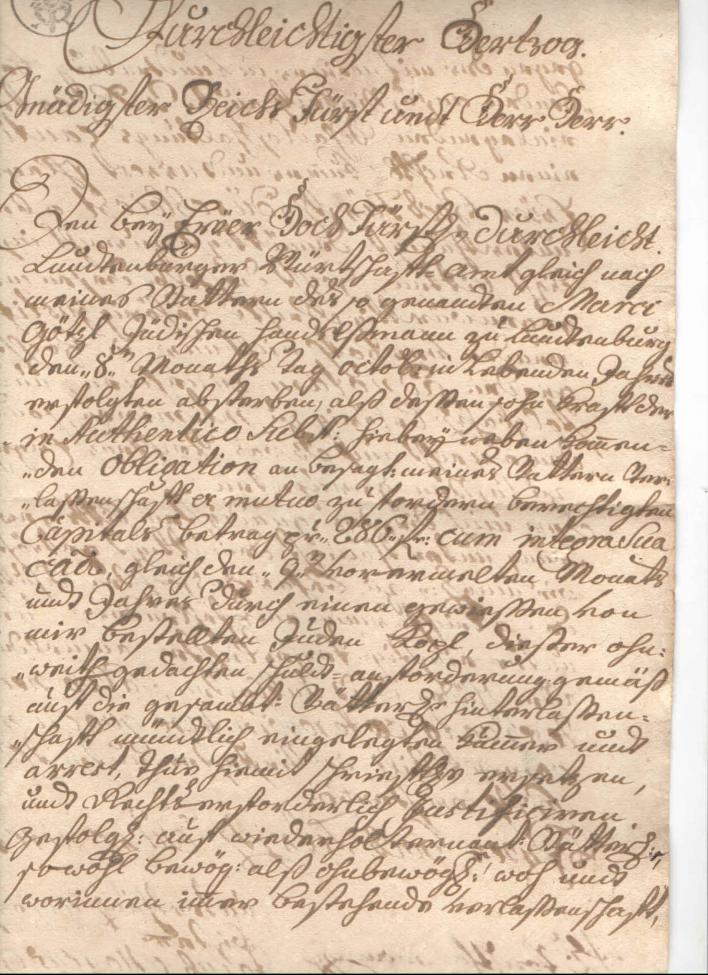 Durchleichtigster Hertzog.
Gnädigster Reichs Fürst undt Herr Herr.
Den bey Eüer Hoch Fürstl. Durchleicht.
Lundenburger Würtschafts amt gleich nach
meines Vattern des so genandten Marci
Götzl Jüdischen handelßmann zu Lundenburg
den 8.ten Monaths Tag octob: in Lebenden Jahres
erfolgten absterben, alß deßen sohn Krafft der
in Authentico sub #: hiebey neben kommen=
„den Obligation an besagt: meines Vattern Ver=
„laßenschafft ex mutuo zu fordern berechtigten
Capitals betrag pr. 286 fr: cum integra sua
causa, gleich den 9.ten vorermelten Monats
undt Jahres durch einen gewießen von
mir bestellten Juden, dießer ohn=
gedachten schuldt=anforderung gemäß
auf die gesambt: Vätterl: hinterlaßen=
„schafft mündtlich eingelegten Kummer undt
arrest, thue hiemit schriefftlich ersetzen,
undt Rechts erforderlich Justificiren
Gefolgl: auf wiederholternant: Vätterl:
so wohl bewög: alß ohnbewögl: wo undt
worinnen immer bestehende Verlaßenschafft,